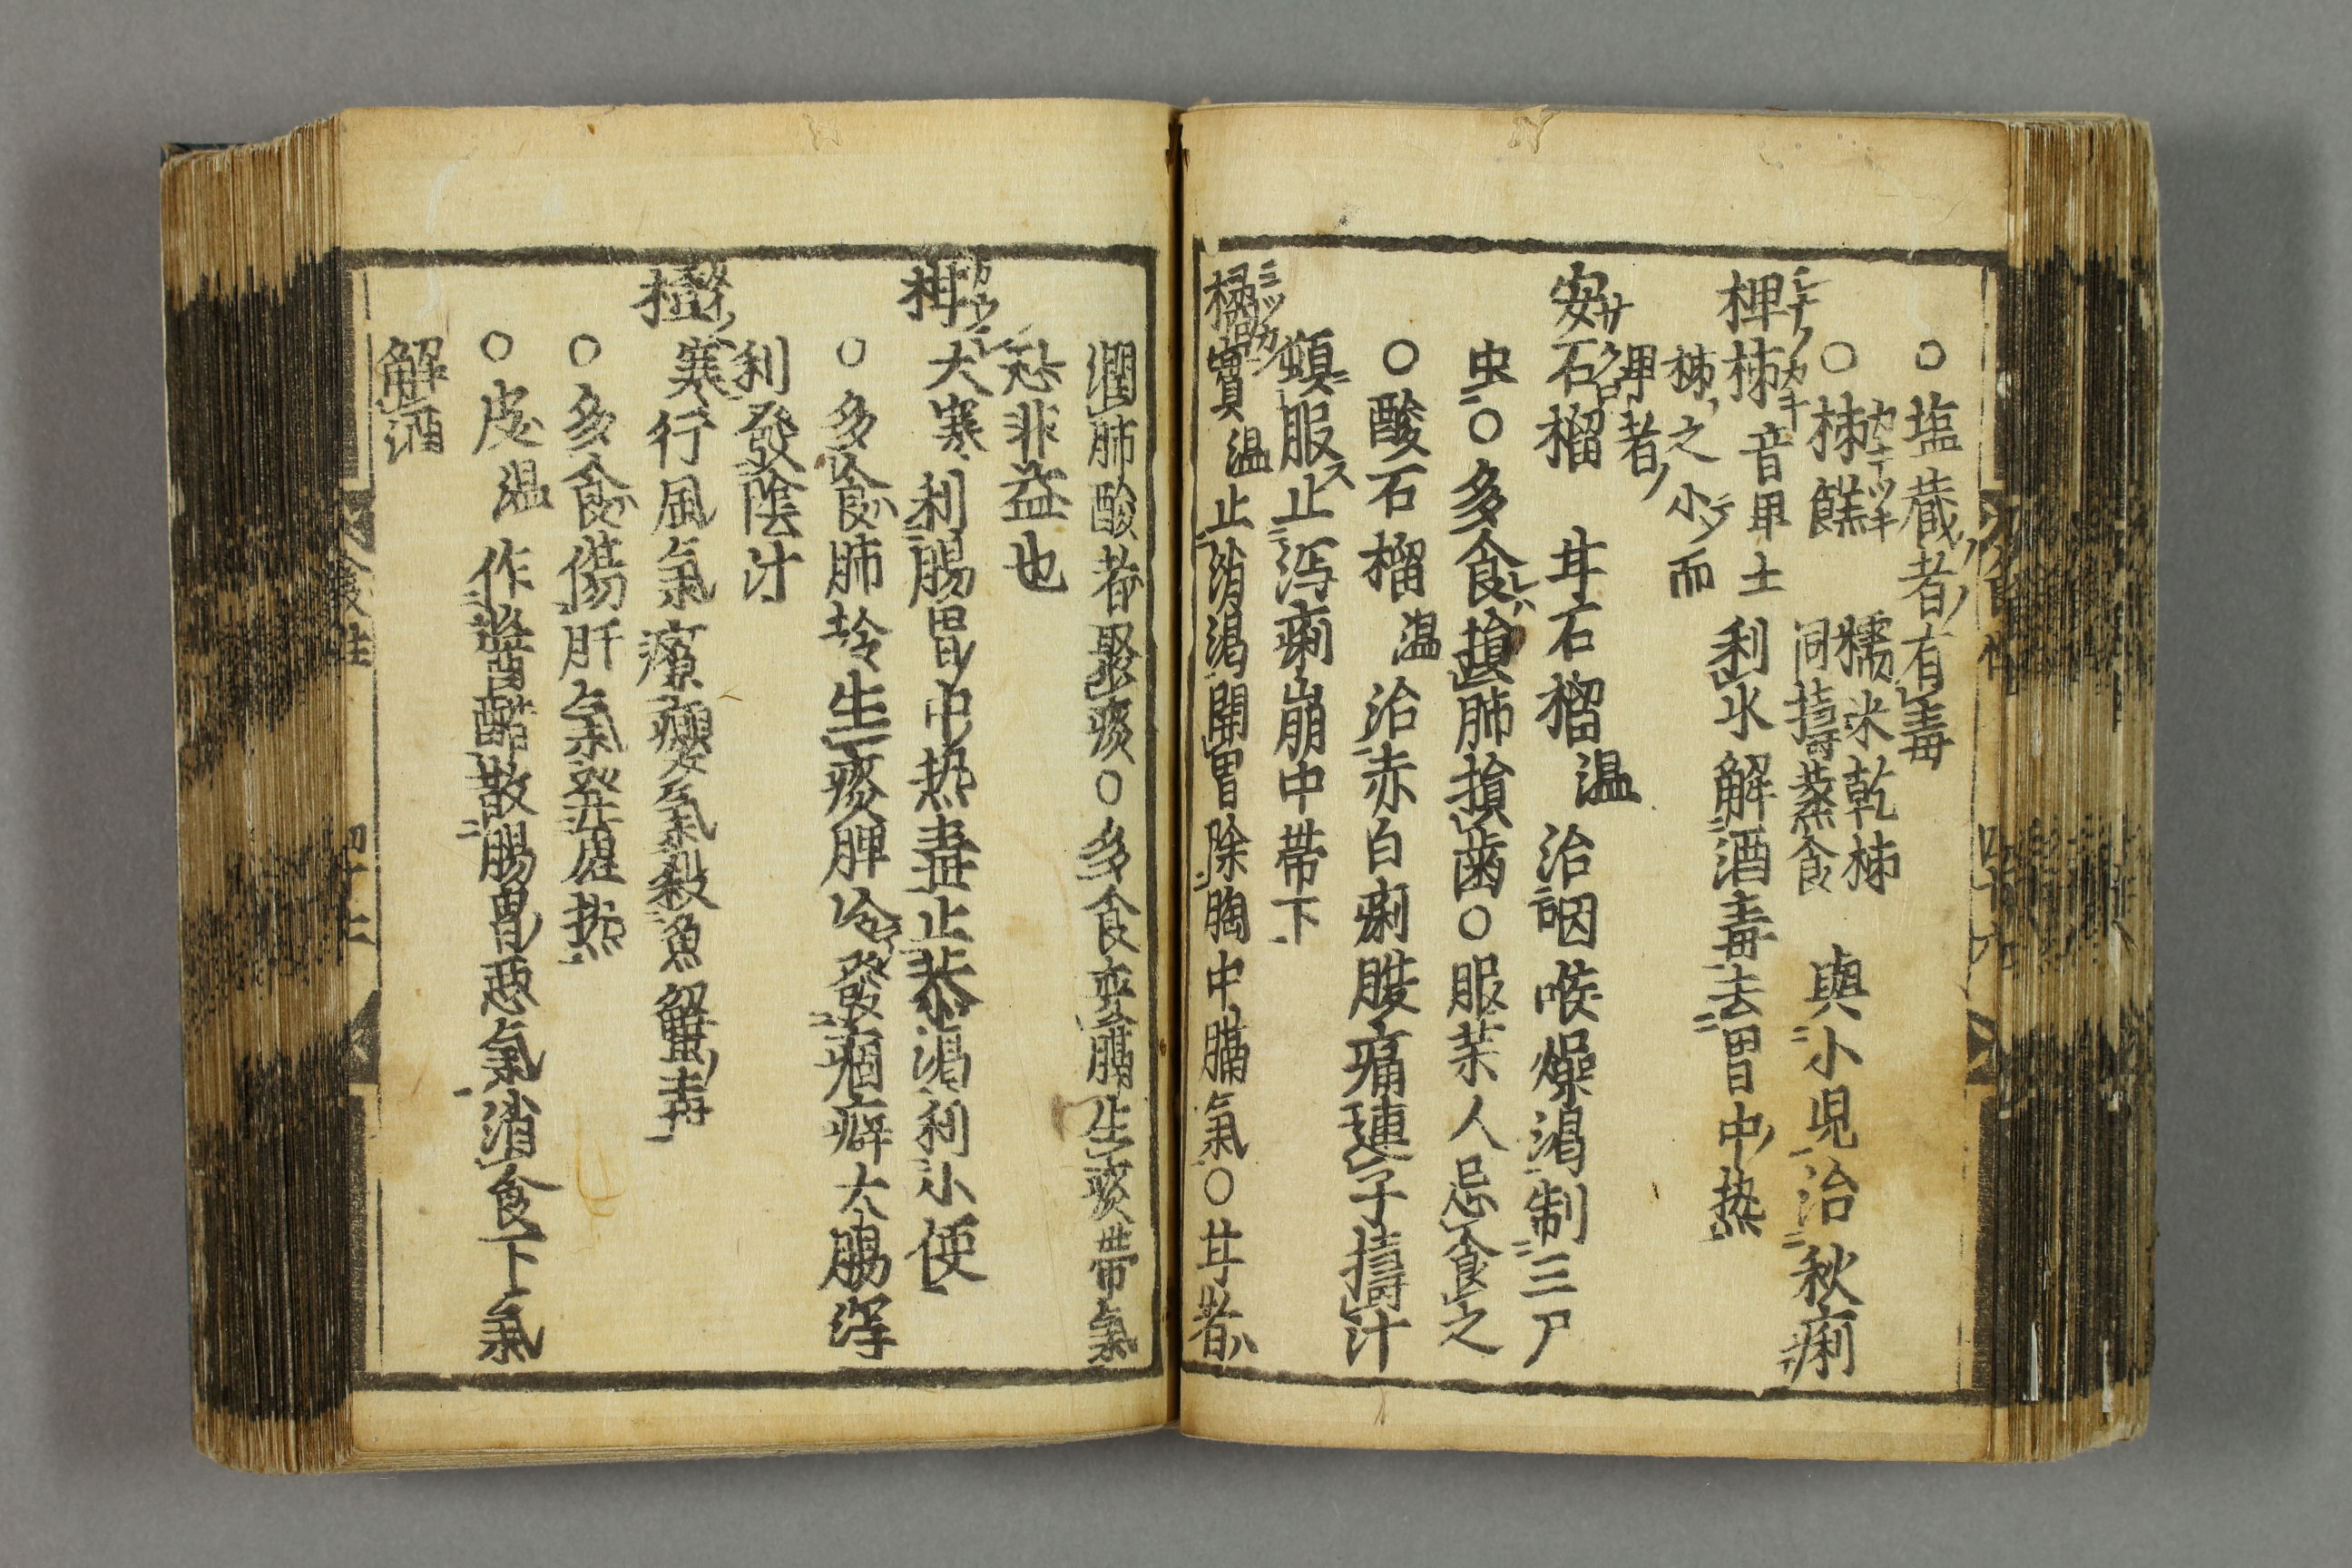 ○塩藏者有毒
○柹餻 糯米乾柹
同擣蒸食 與小児治秋痢
椑柹 音甲土 利水解酒毒去胃中热
柹之小而
甲者
安石榴 甘石榴 温 治咽喉燥渴制三尸
虫○多食損肺損歯○服茶人忌食之
○酸石榴 温 治赤白痢腹痛連子擣汁
頓服止泻痢崩中帶下
橘實 温 止消渴開胃除胸中膈氣○甘者
潤肺酸者聚痰○多食変膈生痰帶氣
恐非益也
柑 大寒 利腸胃中热毒止暴渴利小便
○多食肺冷生痰脾冷發痼癖大腸泻
利發陰汁
橙 寒 行風氣療癭氣殺魚蟹毒
○多食傷肝氣發虚热
○皮 温 作醬醋散腸胃悪氣消食下氣
解酒